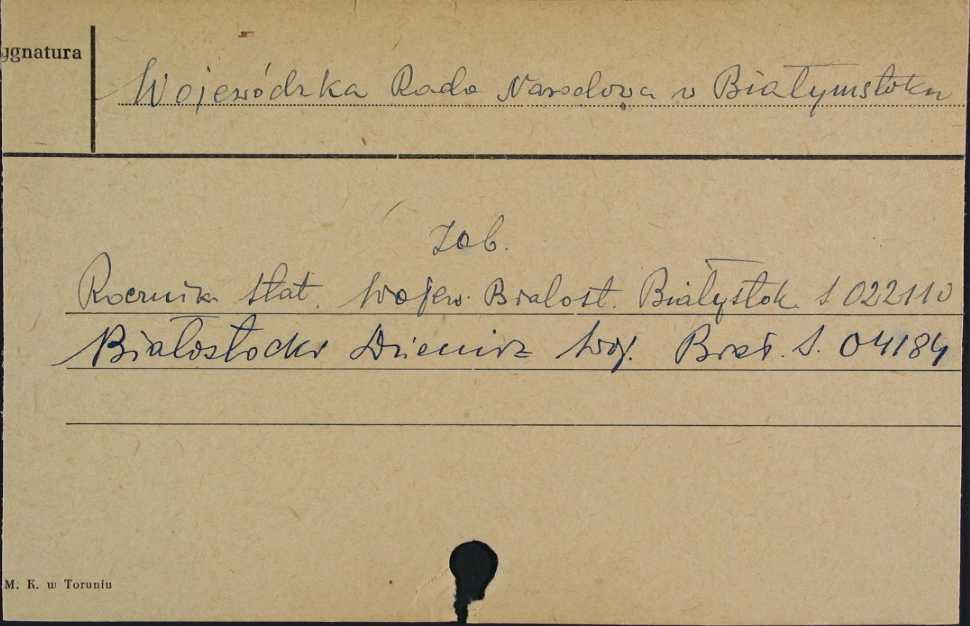 ygnatura
Wojewódzka Rada Narodowa w Białymstoku
Zob.
Rocznik stat. Wojew. Białost. Białystok S 022110
Białostocki Dziennik Woj. Biał. S. 04184
M. K. w Toruniu